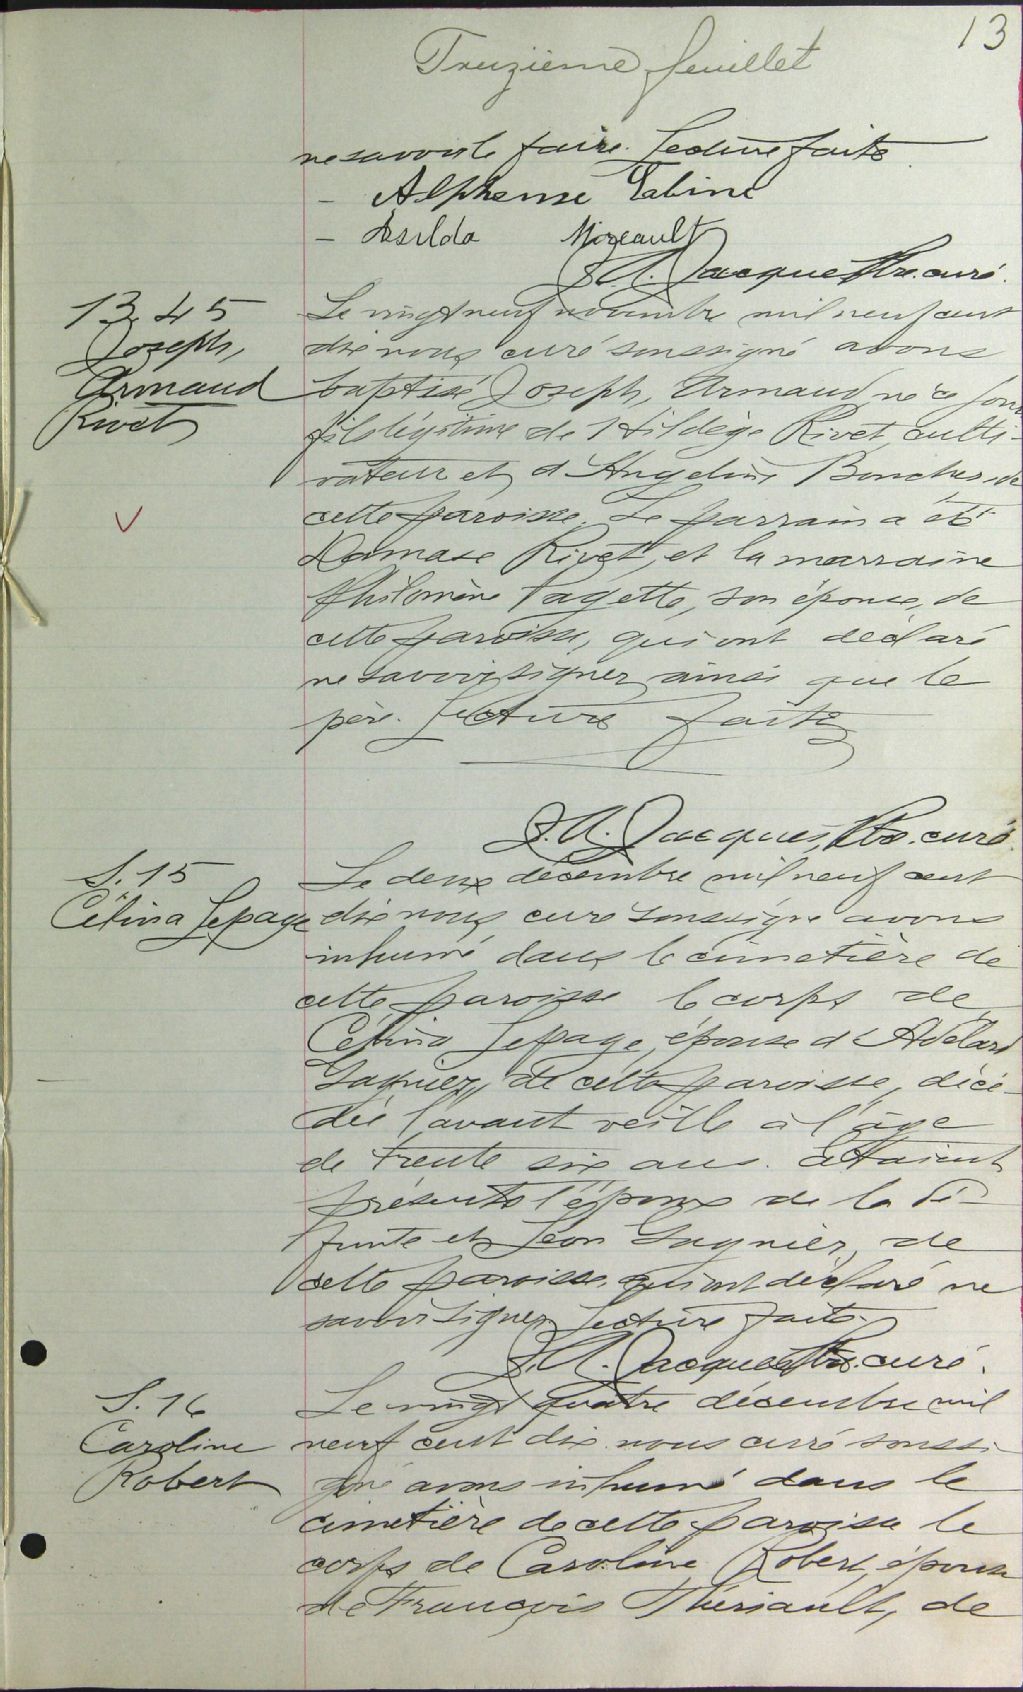 13
Treizième feuillet
ne savoir le faire. Lecture faite.
- Alphonse
- Mireault
J. A. Jacques Ptre. curé.
B. 45
Joseph,
Armand
Rivet
Le vingt neuf novembre mil neuf cent
dix nous curé soussigné avons
baptisé Joseph, Armand, né ce jour
fils légitime de Hildège Rivet, culti-
vateur et d'Angelina Boucher, de
cette paroisse. Le parrain a été
Damase Rivet, et la marraine
Philomène Pagette, son épouse, de
cette paroisse, qui ont déclaré
ne savoir signer ainsi que le
père. Lecture faite
J. A. Jacques, Ptre. curé
S. 15
Célina Lepage
Le deux décembre mil neuf cent
dix nous curé soussigné avons
inhumé dans le cimetière de
cette paroisse le corps de
Célina Lepage, épouse d'Adélard
Gagnier, de cette paroisse, décé-
dée l'avant veille à l'âge
de trente six ans. Etaient
présents l'époux de la dé-
funte et Léon Gagnier, de
cette paroisse qui ont déclaré ne
savoir signer. Lecture faite.
J. A. Jacques Ptre. curé.
S. 16
Caroline
Robert
Le vingt quatre décembre mil
neuf cent dix nous curé soussi-
gné avons inhumé dans le
cimetière de cette paroisse le
corps de Caroline Robert, épouse
de François Thériault, de